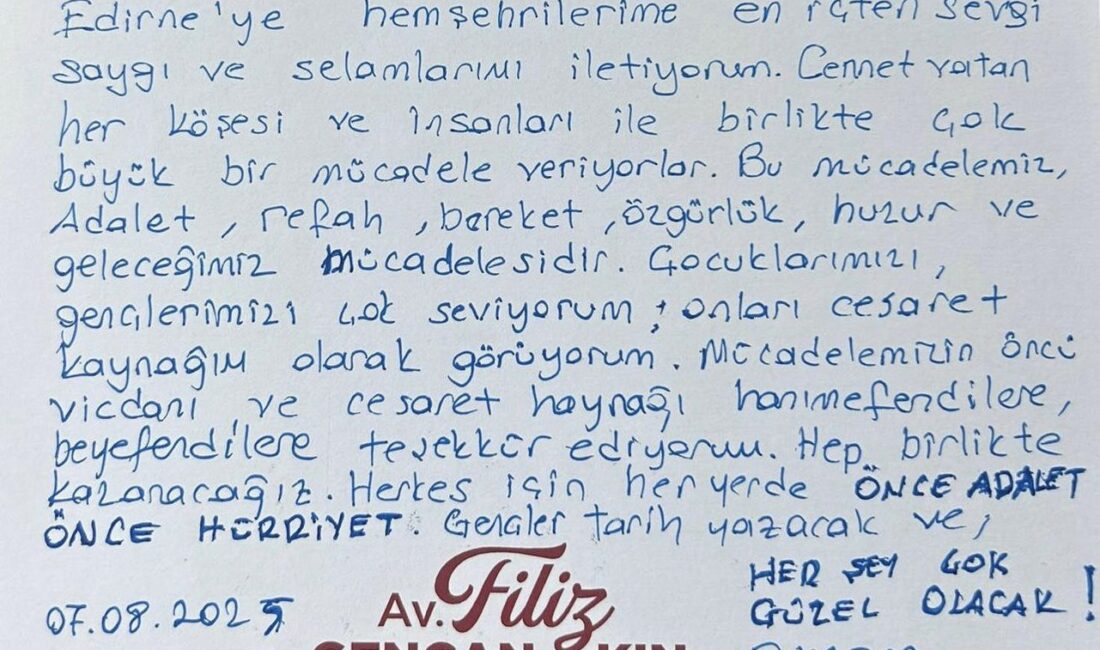 Edirne'ye hemşehrilerime en içten sevgi
saygı ve selamlarımı iletiyorum. Cennet vatan
her köşesi ve insanları ile birlikte çok
büyük bir mücadele veriyorlar. Bu mücadelemiz,
Adalet, refah, bereket, özgürlük, huzur ve
geleceğimiz mücadelesidir. Çocuklarımızı,
gençlerimizi çok seviyorum; onları cesaret
kaynağım olarak görüyorum. Mücadelemizin öncü
vicdanı ve cesaret kaynağı hanımefendilere,
beyefendilere teşekkür ediyorum. Hep birlikte
kazanacağız. Herkes için her yerde ÖNCE ADALET
ÖNCE HÜRRİYET. Gençler tarih yazacak ve,
HER ŞEY ÇOK
GÜZEL OLACAK!
07.08.2025
Av. Filiz